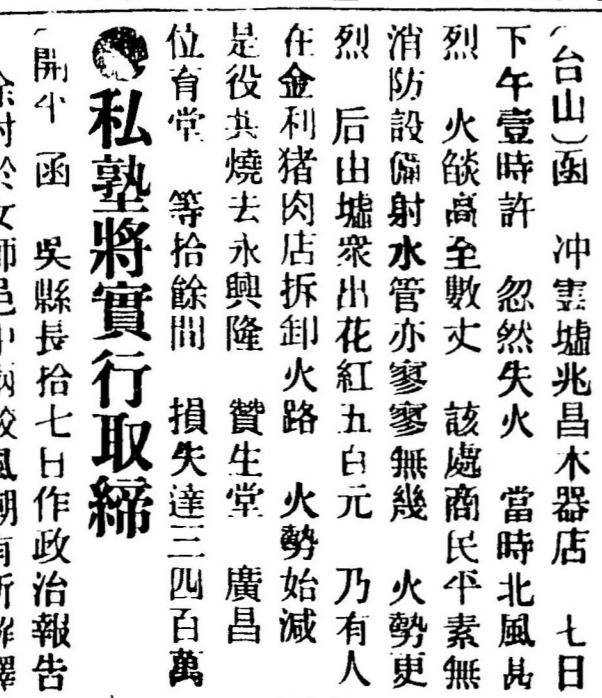 （台山）函　冲雲墟兆昌木器店　七日
下午壹時許　忽然失火　當時北風甚
烈　火燄高至數丈　該處商民平素無
消防設備射水管亦寥寥無幾　火勢更
烈　后由墟衆出花紅五百元　乃有人
在金利猪肉店拆卸火路　火勢始減
是役共燒去永興隆　贊生堂　廣昌
位育堂　等拾餘間　損失達三四百萬
私塾將實行取締
（開平　函　吳縣長拾七日作政治報告